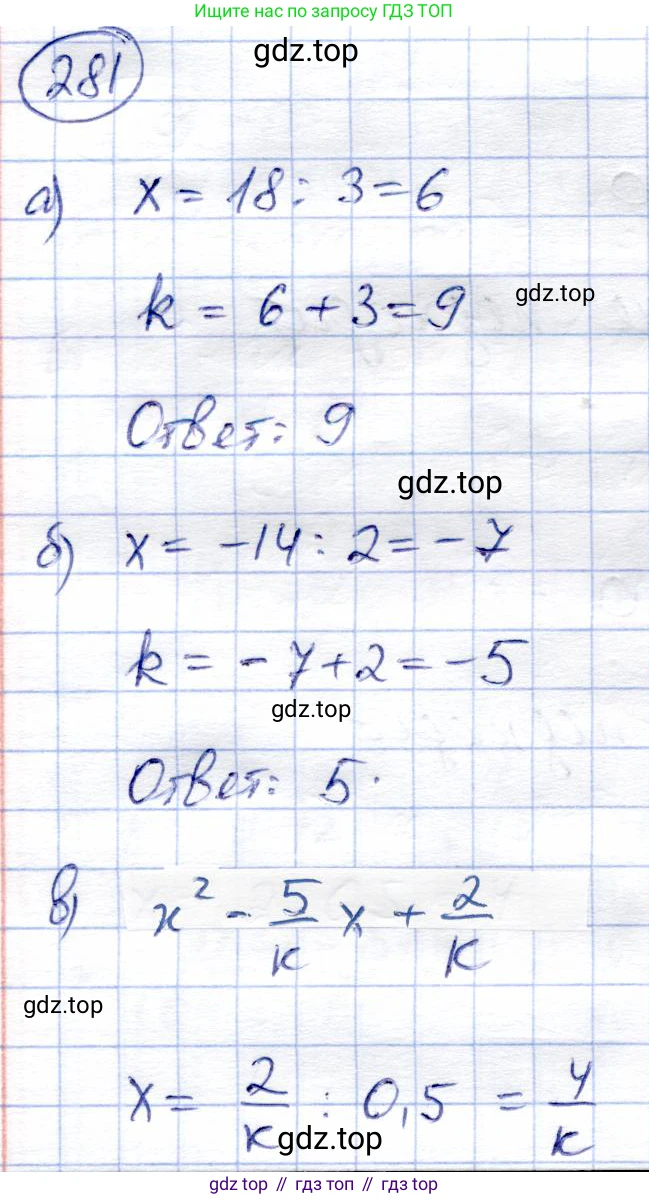 Ищите нас по запросу ГДЗ ТОП
gdz.top
281
а) x = 18 : 3 = 6
k = 6 + 3 = 9
gdz.top
Ответ: 9
gdz.top
б) x = -14 : 2 = -7
k = -7 + 2 = -5
gdz.top
Ответ: 5.
в) x² - 5/k x + 2/k
gdz.top
x = 2/k : 0,5 = 4/k
gdz.top
gdz top // гдз топ // gdz top